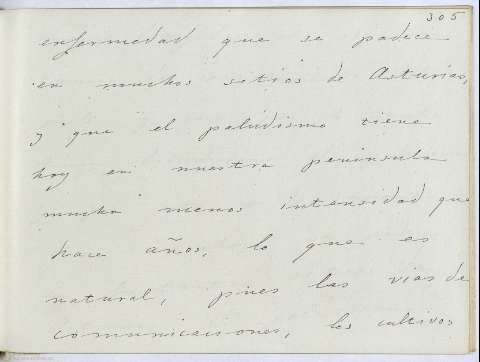 305
enfermedad que se padece
en muchos sitios de Asturias,
y que el paludismo tiene
hoy en nuestra peninsula
mucha menos intensidad que
hace años, lo que es
natural, pues las vias de
comunicaciones, los cultivos